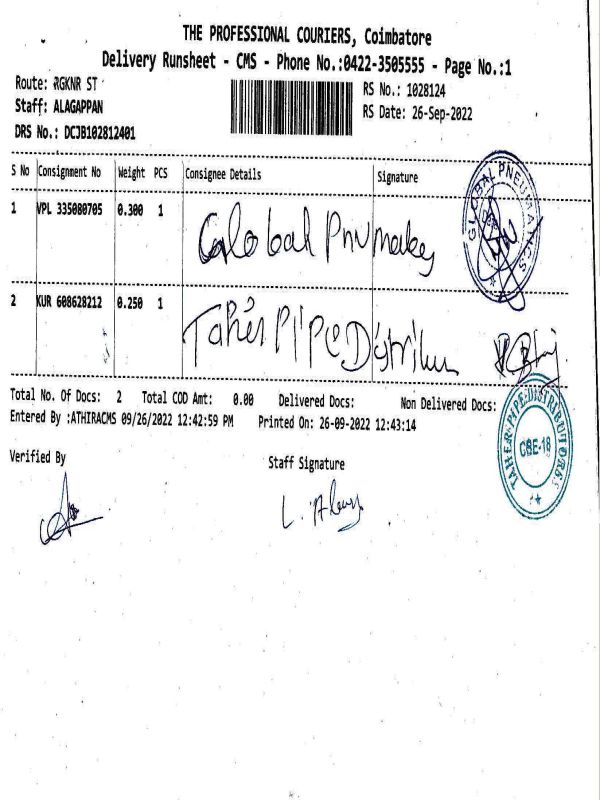 THE PROFESSIONAL COURIERS, Coimbatore
Delivery Runsheet - CMS - Phone No.:0422-3505555 - Page No.:1
Route: RGKNR ST
RS No.: 1028124
Staff: ALAGAPPAN
RS Date: 26-Sep-2022
DRS No.: DCJB102812401
S No Consignment No Weight PCS Consignee Details Signature
1 VPL 335080705 0.300 1 Global Pnumakes
GLOBAL PNEUMATICS
2 KUR 608628212 0.250 1 Taher Pipe Distribu
Total No. Of Docs: 2 Total COD Amt: 0.00 Delivered Docs: Non Delivered Docs:
Entered By :ATHIRACMS 09/26/2022 12:42:59 PM Printed On: 26-09-2022 12:43:14
TAHER PIPE DISTRIBUTORS
CBE-18
Verified By Staff Signature